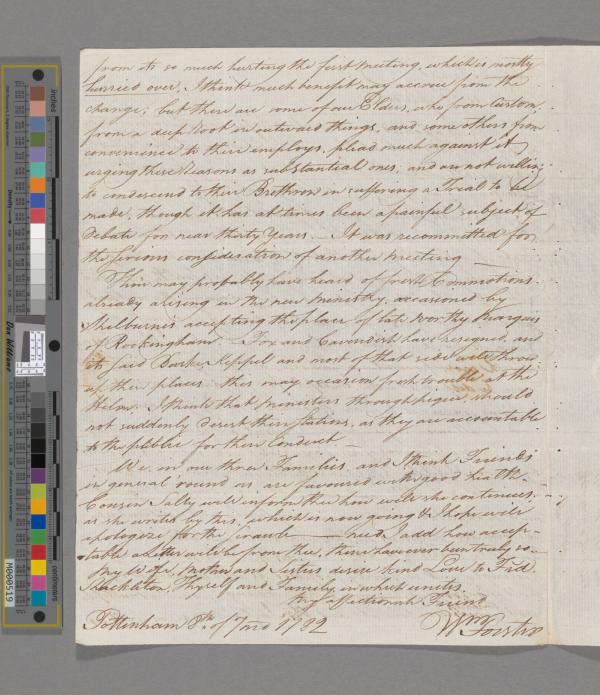 from its so much hurting the first meeting, which is mostly
hurried over, I think much benefit may accrue from the
change; but there are some of our Elders, who from custom,
from a deep Root in outward things, and some others from
convenience to their employs, plead much against it
urging these Reasons as substantial ones, and are not willing
to condescend to their Brethren in suffering a Treal to be
made, though it has at times been a painful subject of
Debate for near thirty Years — It was recommitted for
the serious consideration of another meeting —
Thou may probably have heard of fresh Commotions
already arising in the new Ministry, occasioned by
Shelburne's accepting the place of late worthy Marquis
of Rockingham — Fox and Cavendish have resigned, and
its said Burke, Keppel and most of that side will throw
up their places. this may occasion fresh trouble at the
Helm. I think that Ministers through pique should
not suddenly desert their stations, as they are accountable
to the publick for their Conduct —
We, in our three Families, and I think Friends
in general round us are favoured with good health.
Cousin Sally will inform thee how well she continues,
as she writes by this, which is now going & I hope will
apologize for the scrawl — need I add how accep-
table a Letter will be from thee, these have ever been truly so —
My Wife, Mother and Sisters desire kind Love to Frd
Shackleton, Thyself and Family, in which unites
thy affectionate Friend
Wm Forster
Tottenham 8th of 7mo 1782
inches
centimetres
Don Williams
M000519